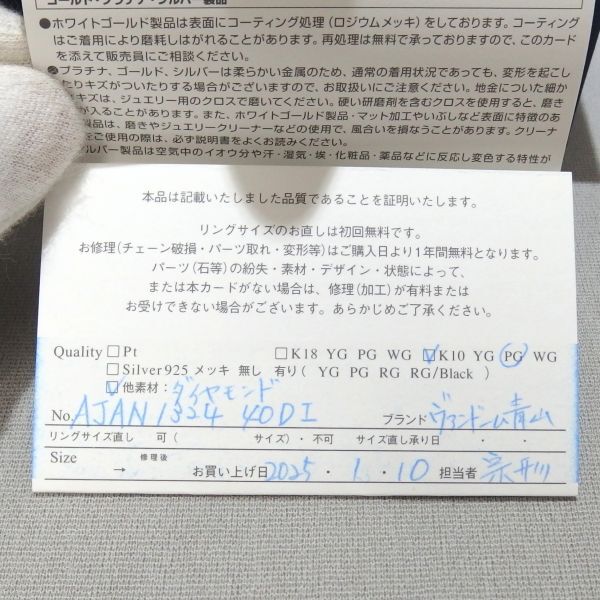 ゴールド・プラチナ・シルバー製品
●ホワイトゴールド製品は表面にコーティング処理(ロジウムメッキ)をしております。コーティング
はご着用により磨耗しはがれることがあります。再処理は無料で承っておりますので、このカード
を添えて販売員にご相談ください。
●プラチナ、ゴールド、シルバーは柔らかい金属のため、通常の着用状況であっても、変形を起こし
たりキズがついたりする場合がございますので、お取扱いにご注意ください。地金についた細か
キズは、ジュエリー用のクロスで磨いてください。硬い研磨剤を含むクロスを使用すると、磨き
が入ることがあります。また、ホワイトゴールド製品・マット加工やいぶしなど表面に特徴のあ
製品は、磨きやジュエリークリーナーなどの使用で、風合いを損なうことがあります。クリーナ
をご使用の際は、必ず説明書をよくお読みください。
シルバー製品は空気中のイオウ分や汗・湿気・埃・化粧品・薬品などに反応し変色する特性が
本品は記載いたしました品質であることを証明いたします。
リングサイズのお直しは初回無料です。
お修理(チェーン破損・パーツ取れ・変形等)はご購入日より1年間無料となります。
パーツ(石等)の紛失・素材・デザイン・状態によって、
または本カードがない場合は、修理(加工)が有料または
お受けできない場合がございます。あらかじめご了承ください。
Quality □Pt □K18 YG PG WG ☑K10 YG PG WG
□Silver925 メッキ 無し 有り( YG PG RG RG/Black )
☑他素材: ダイヤモンド
No. AJAN1324 40DI ブランド ヴァンドーム青山
リングサイズ直し 可( サイズ)・不可 サイズ直し承り日 ・ ・
Size → 修理後 お買い上げ日 2025・1・10 担当者